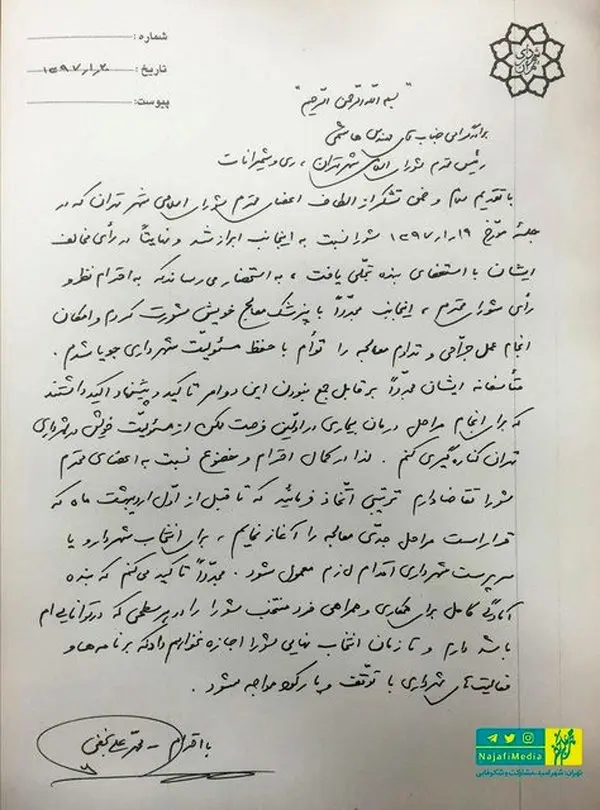 شماره :
تاریخ : ۱۳۹۷/۱/۲۰
پیوست :
"بسم الله الرحمن الرحیم"
برادر گرامی جناب آقای مهندس هاشمی
رئیس محترم شورای اسلامی شهر تهران، ری و شمیرانات
با تقدیم سلام و ضمن تشکر از الطاف اعضای محترم شورای اسلامی شهر تهران که در
جلسهٔ مورخ ۱۳۹۷/۱/۱۹ شورا نسبت به اینجانب ابراز شد و نهایتاً در رأی مخالف
ایشان با استعفای بنده تجلّی یافت، به استحضار می‌رساند که به احترام نظر و
رأی شورای محترم، اینجانب مجدّداً با پزشک معالج خویش مشورت کردم و امکان
انجام عمل جراحی و تداوم معالجه را توأم با حفظ مسئولیت شهرداری جویا شدم.
متأسفانه ایشان مجدّداً بر قابل جمع نبودن این دو امر تاکید و پیشنهاد اکید داشتند
که برای انجام مراحل درمان بیماری در اولین فرصت ممکن از مسئولیّت خویش در شهرداری
تهران کناره‌گیری کنم. لذا در کمال احترام و خضوع نسبت به اعضای محترم
شورا تقاضا دارم ترتیبی اتخاذ فرمائید که تا قبل از اوّل اردیبهشت ماه که
قرار است مراحل جدّی معالجه را آغاز نمایم، برای انتخاب شهردار و یا
سرپرست شهرداری اقدام لازم معمول شود. مجدّداً تاکید می‌کنم که بنده
آمادگی کامل برای همکاری و همراهی فرد منتخب شورا را در هر سطحی که در توانایی‌ام
باشد دارم و تا زمان انتخاب نهایی شورا اجازه نخواهم داد که برنامه‌ها و
فعالیت‌های شهرداری با توقّف و یا رکود مواجه شود.
با احترام - محمد علی نجفی
NajafiMedia
تهران؛ شهر امید، مشارکت و شکوفایی